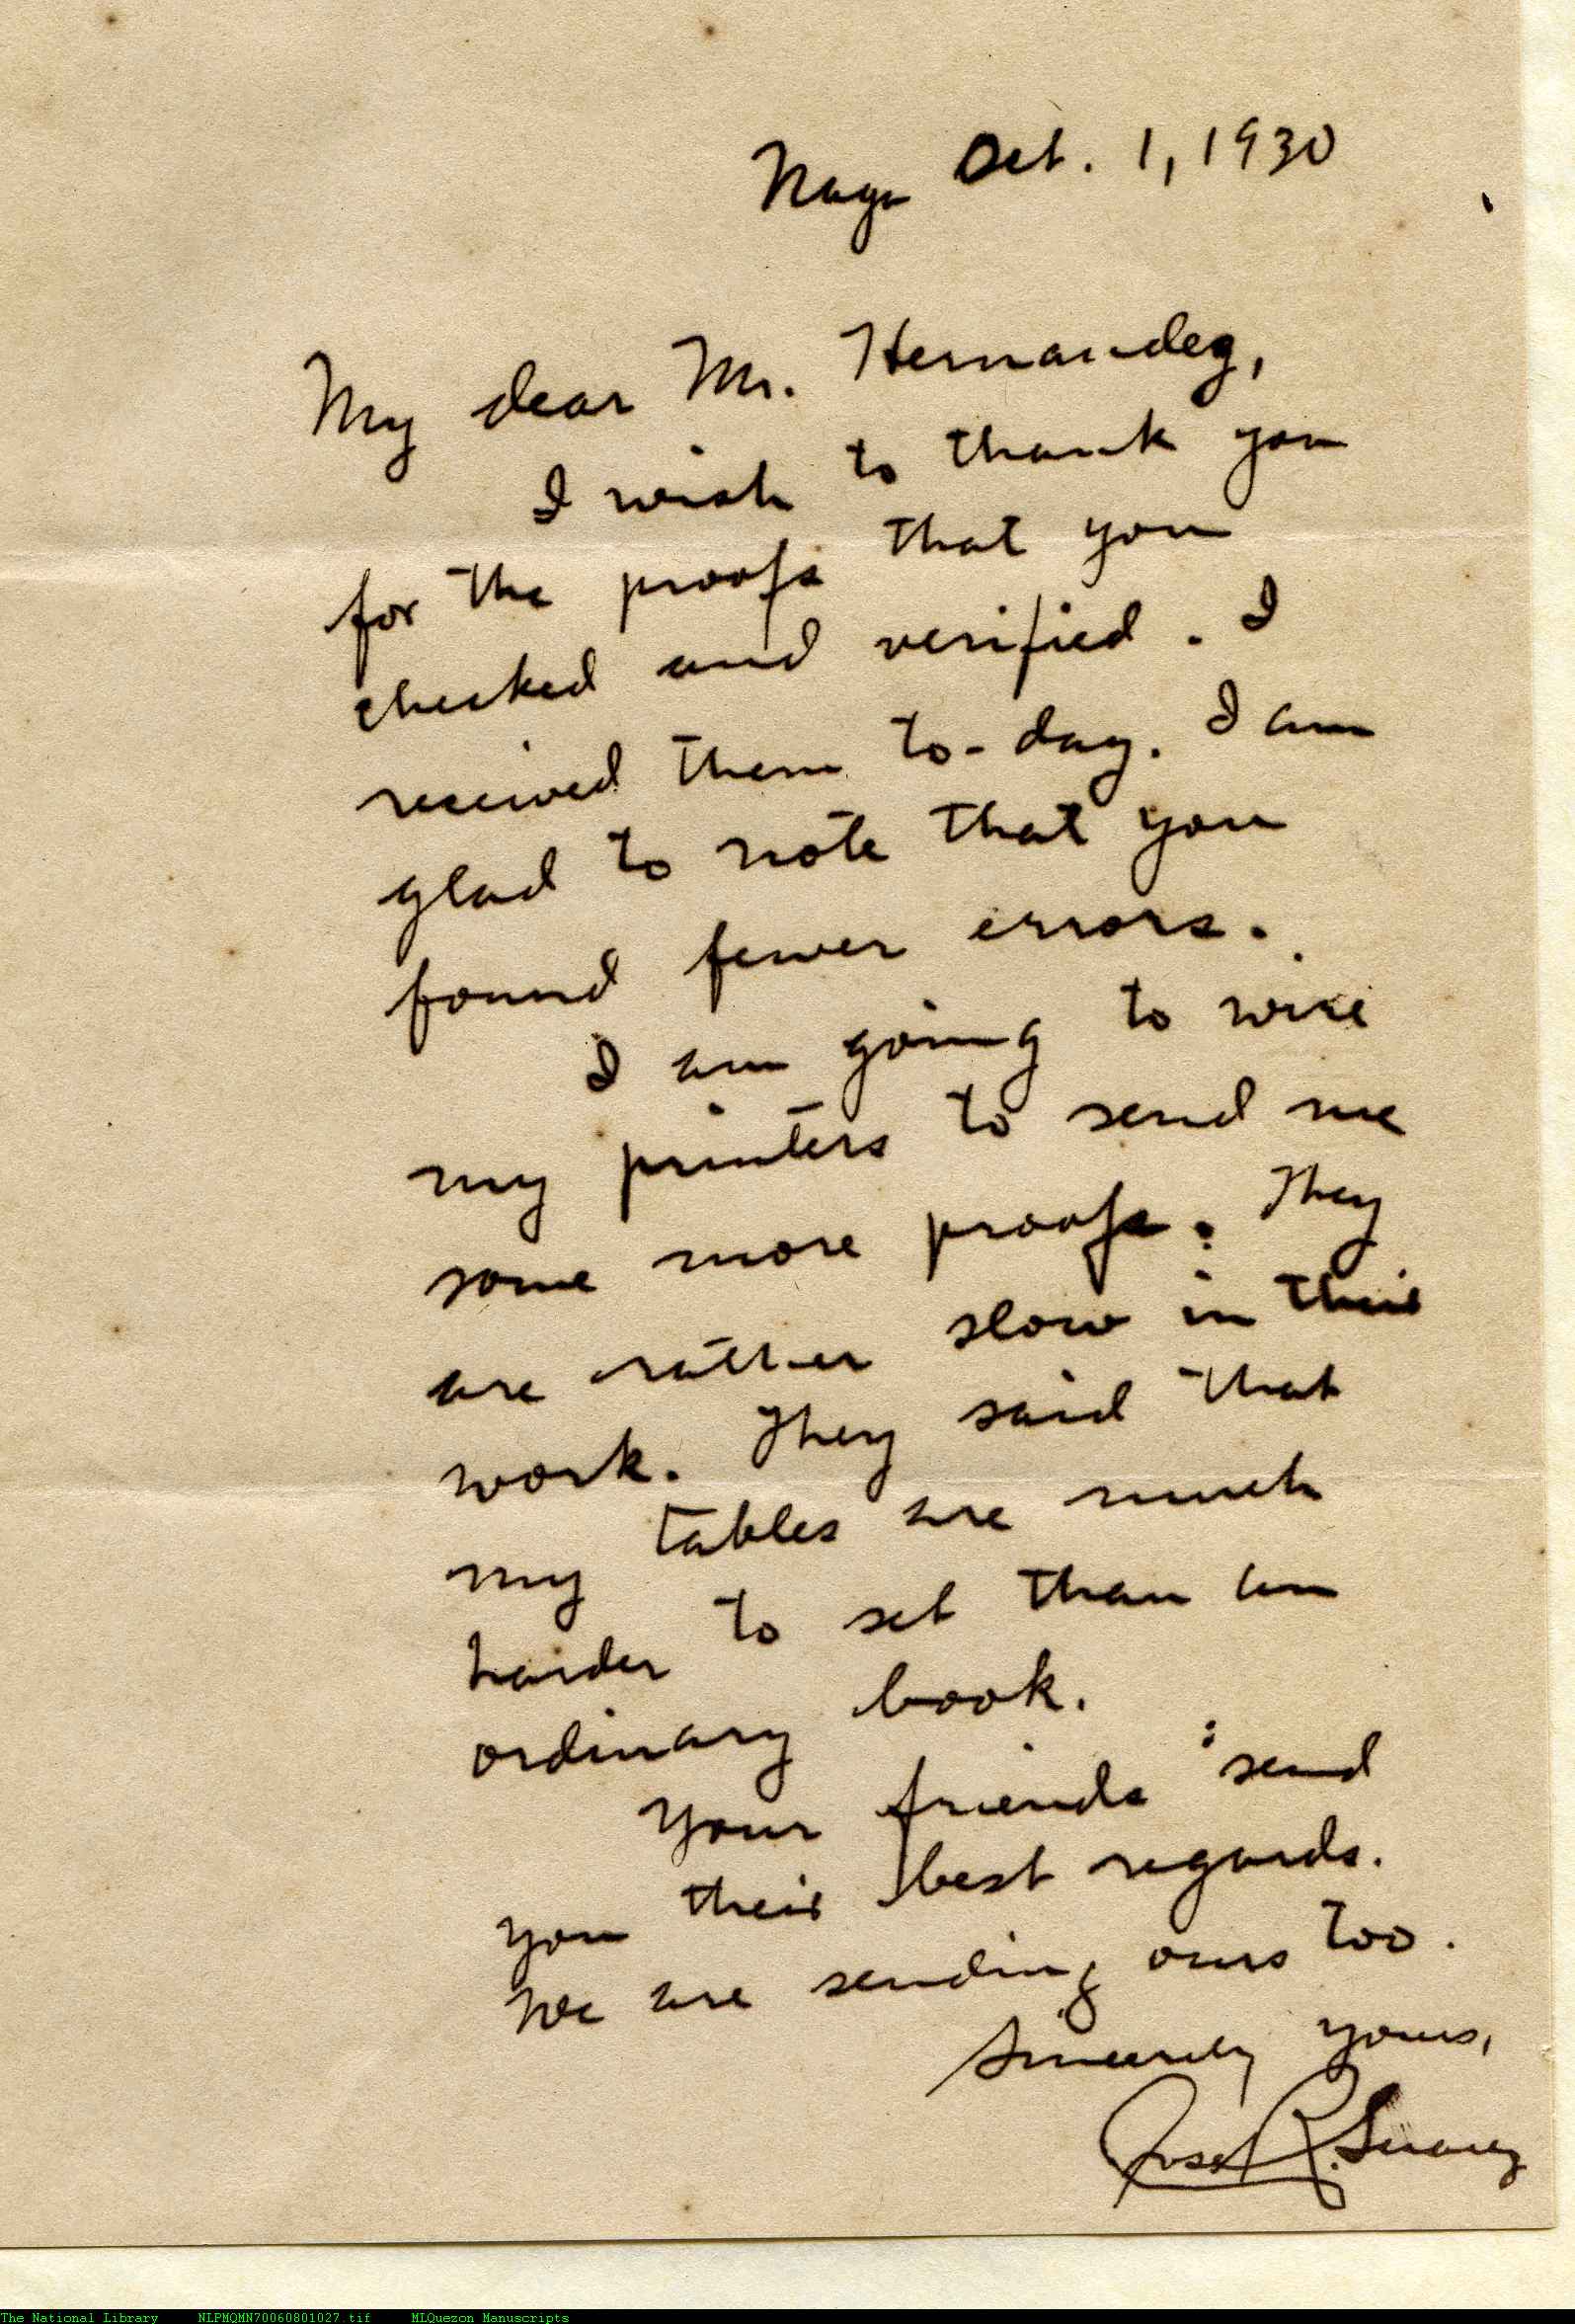 Naga Oct. 1, 1930
My dear Mr. Hernandez,
I wish to thank you
for the proofs that you
checked and verified. I
received them to-day. I am
glad to note that you
found fewer errors.
I am going to wire
my printers to send me
some more proofs. They
are rather slow in their
work. They said that
my tables are much
harder to set than an
ordinary book.
Your friends send
you their best regards.
We are sending ours too.
Sincerely yours,
Jose R. Suarez
The National Library NLPMQMN70060801027.tif MLQuezon Manuscripts